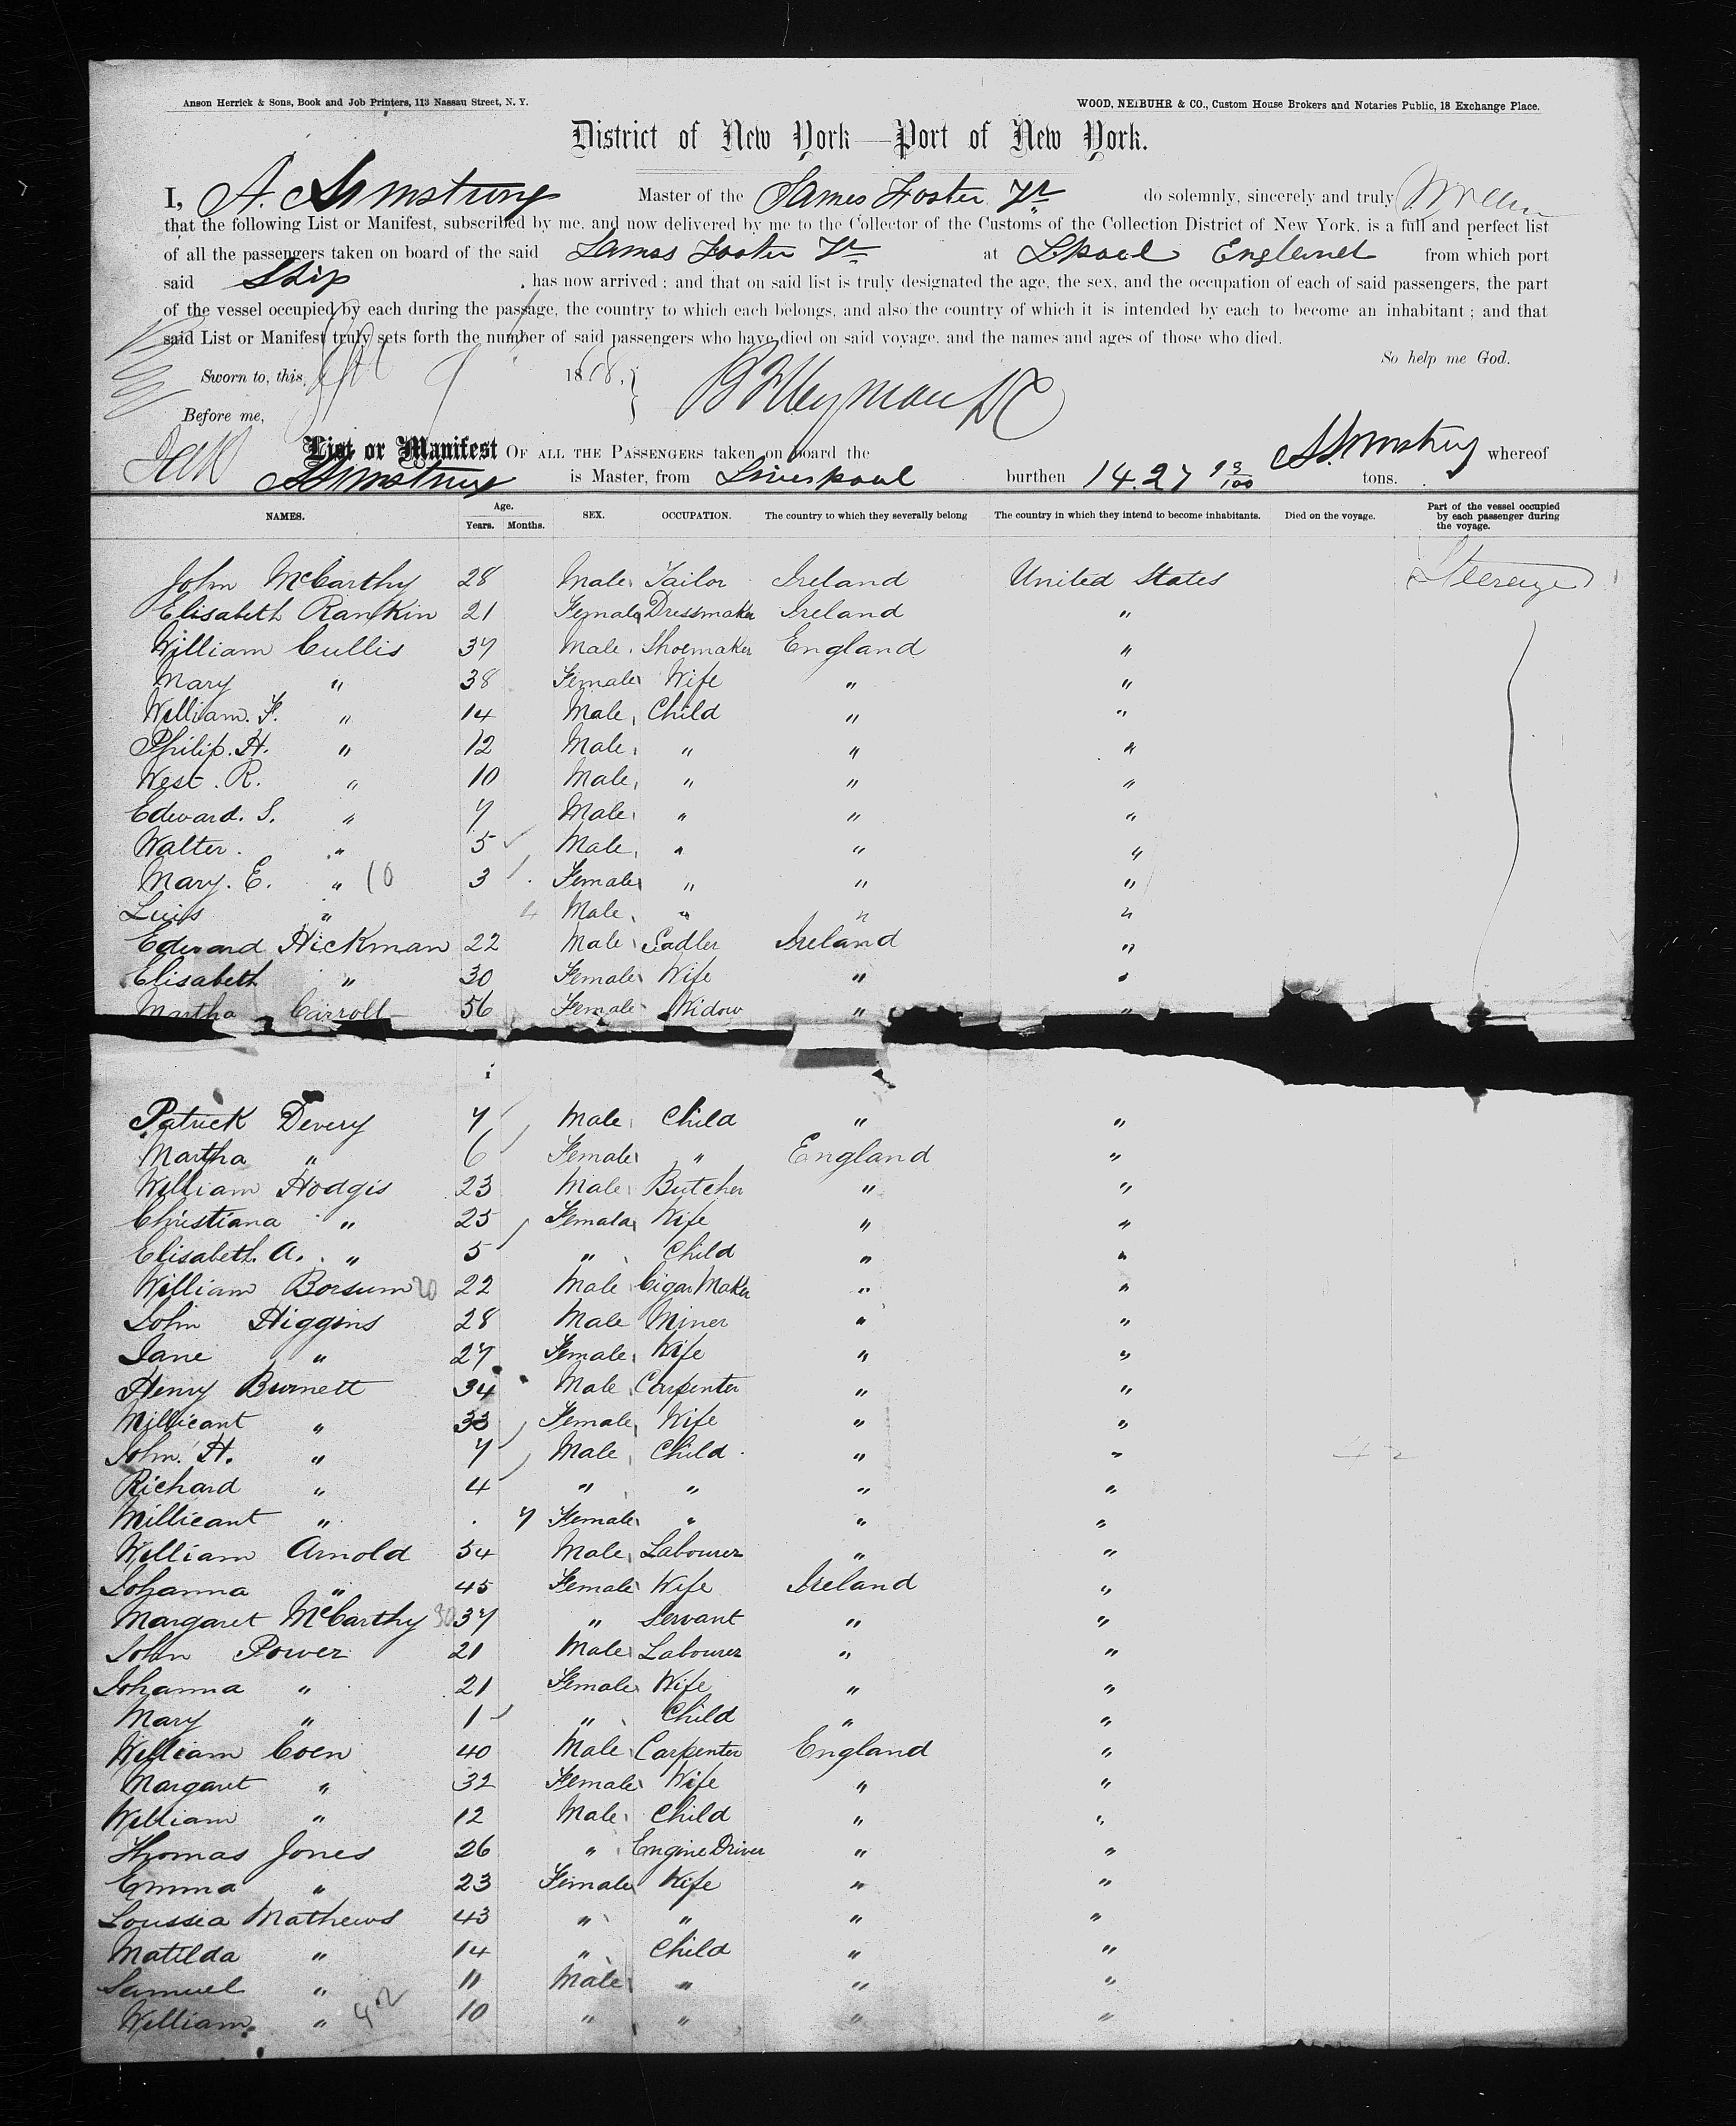 Anson Herrick & Sons, Book and Job Printers, 113 Nassau Street, N. Y.
WOOD, NEIBUHR & CO., Custom House Brokers and Notaries Public, 18 Exchange Place.
District of New York—Port of New York.
I, A. Armstrong Master of the James Foster Jr do solemnly, sincerely and truly
that the following List or Manifest, subscribed by me, and now delivered by me to the Collector of the Customs of the Collection District of New York, is a full and perfect list
of all the passengers taken on board of the said James Foster Jr at Lpool England from which port
said Ship has now arrived ; and that on said list is truly designated the age, the sex, and the occupation of each of said passengers, the part
of the vessel occupied by each during the passage, the country to which each belongs, and also the country of which it is intended by each to become an inhabitant ; and that
said List or Manifest truly sets forth the number of said passengers who have died on said voyage, and the names and ages of those who died.
So help me God.
Sworn to, this 1868,
Before me,
List or Manifest OF ALL THE PASSENGERS taken on board the A. Armstrong whereof
Armstrong is Master, from Liverpool burthen 1427 93/100 tons.
NAMES. Age. Years. Months. SEX. OCCUPATION. The country to which they severally belong The country in which they intend to become inhabitants. Died on the voyage. Part of the vessel occupied by each passenger during the voyage.
John McCarthy 28 Male Tailor Ireland United States Steerage
Elisabeth Rankin 21 Female Dressmaker Ireland "
William Cullis 37 Male Shoemaker England "
Mary " 38 Female Wife " "
William. F. " 14 Male Child " "
Philip. H. " 12 Male " " "
West. R. " 10 Male " " "
Edward. S. " 7 Male " " "
Walter. " 5 Male " " "
Mary. E. " 10 3 Female " " "
Luis " 4 Male " " "
Edward Hickman 22 Male Sadler Ireland "
Elisabeth " 30 Female Wife " "
Martha Carroll 56 Female Widow " "
Patrick Devery 7 Male Child " "
Martha " 6 Female " England "
William Hodgis 23 Male Butcher " "
Christiana " 25 Female Wife " "
Elisabeth. A. " 5 " Child " "
William Borsum 20 22 Male Cigar Maker " "
John Higgins 28 Male Miner " "
Jane " 27 Female Wife " "
Henry Burnett 34 Male Carpenter " "
Millicant " 33 Female Wife " "
John. H. " 7 Male Child " "
Richard " 4 " " " "
Millicant " 7 Female " " "
William Arnold 54 Male Labourer " "
Johanna " 45 Female Wife Ireland "
Margaret McCarthy 30 37 " Servant " "
John Power 21 Male Labourer " "
Johanna " 21 Female Wife " "
Mary " 1 " Child " "
William Coen 40 Male Carpenter England "
Margaret " 32 Female Wife " "
William " 12 Male Child " "
Thomas Jones 26 " Engine Driver " "
Emma " 23 Female Wife " "
Loussia Mathews 43 " " " "
Matilda " 14 " Child " "
Samuel " 11 Male " " "
William " 42 10 " " " "